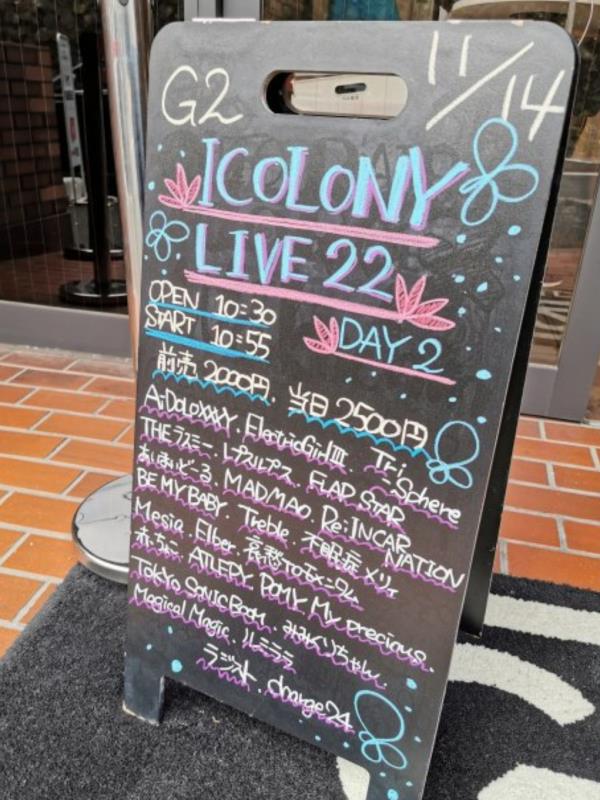 G2 11/14
ICOLONY
LIVE 22
OPEN 10:30
START 10:55
DAY 2
前売 2000円. 当日 2500円
AiDOLOXXXY. ElectricGirlⅢ. Tri_Sphere
THEラスミー. レプスルプス. FLAD STAR
あいまいどーる. MADMAO. Re:INCARNATION
BE MY BABY. Treble. 不眠症メリィ
Mesia. Elber. 哀愁
赤ちゃん. ATLEDY. DOMY. My precious.
Tokyo Sonic Boom. みみくりちゃん.
Magical Magic. ルミララ
ラジスト. charge24